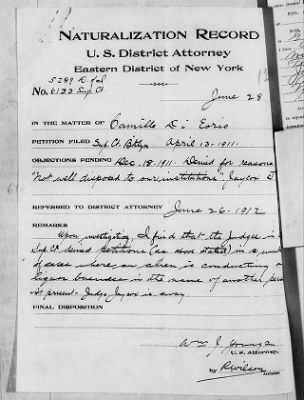 NATURALIZATION RECORD
U. S. District Attorney
Eastern District of New York
5289 D of J
No. 6122 Sup. Ct
June 28
IN THE MATTER OF Camillo Di Iorio
PETITION FILED Sup. Ct. Bklyn April 13-1911.
OBJECTIONS PENDING Dec. 18. 1911. Denied for reasons
"not well disposed to our institutions" Jaycox J
REFERRED TO DISTRICT ATTORNEY June 26-1912
REMARKS
Upon investigation I find that the Judge in
Sup Ct denied petitions (as above stated) in a
of cases where an alien is conducting a
liquor business in the name of another,
at present. Judge Jaycox is away.
FINAL DISPOSITION
Wm J. Youngs
U. S. Attorney.
By
Assistant